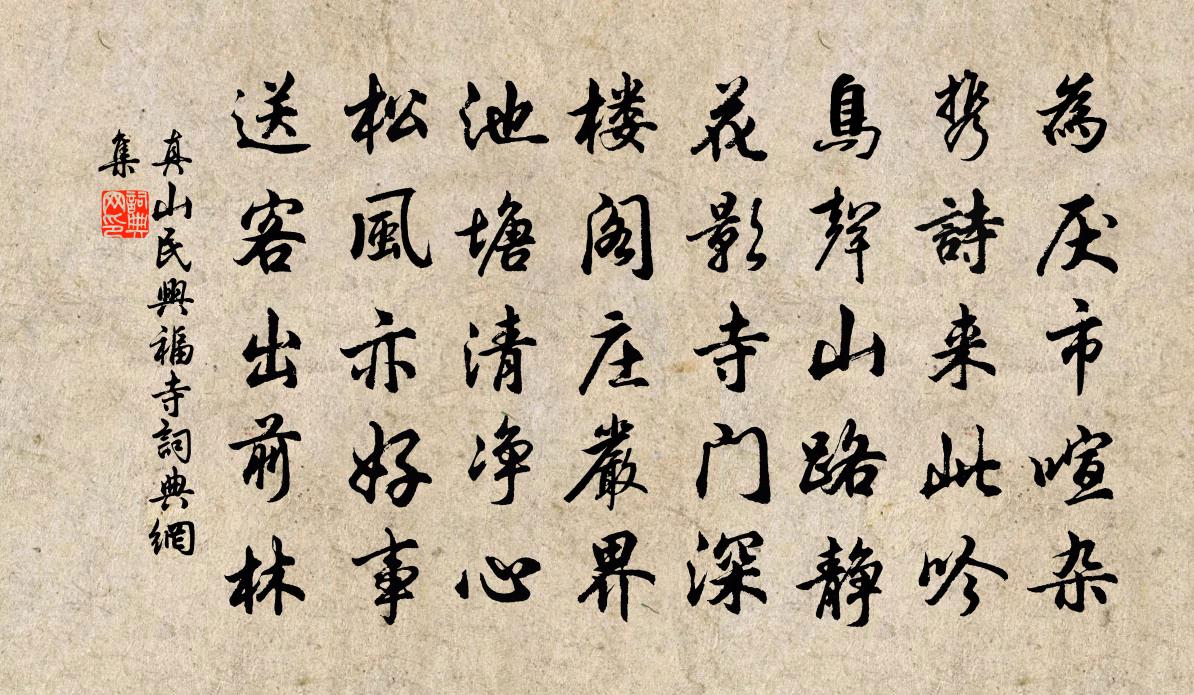 為厌市喧杂
携詩来此吟
鳥聲山路静
花影寺门深
楼阁庄嚴界
池塘清净心
松風亦好事
送客出前林
真山民興福寺詞典網
集
詞典
网印